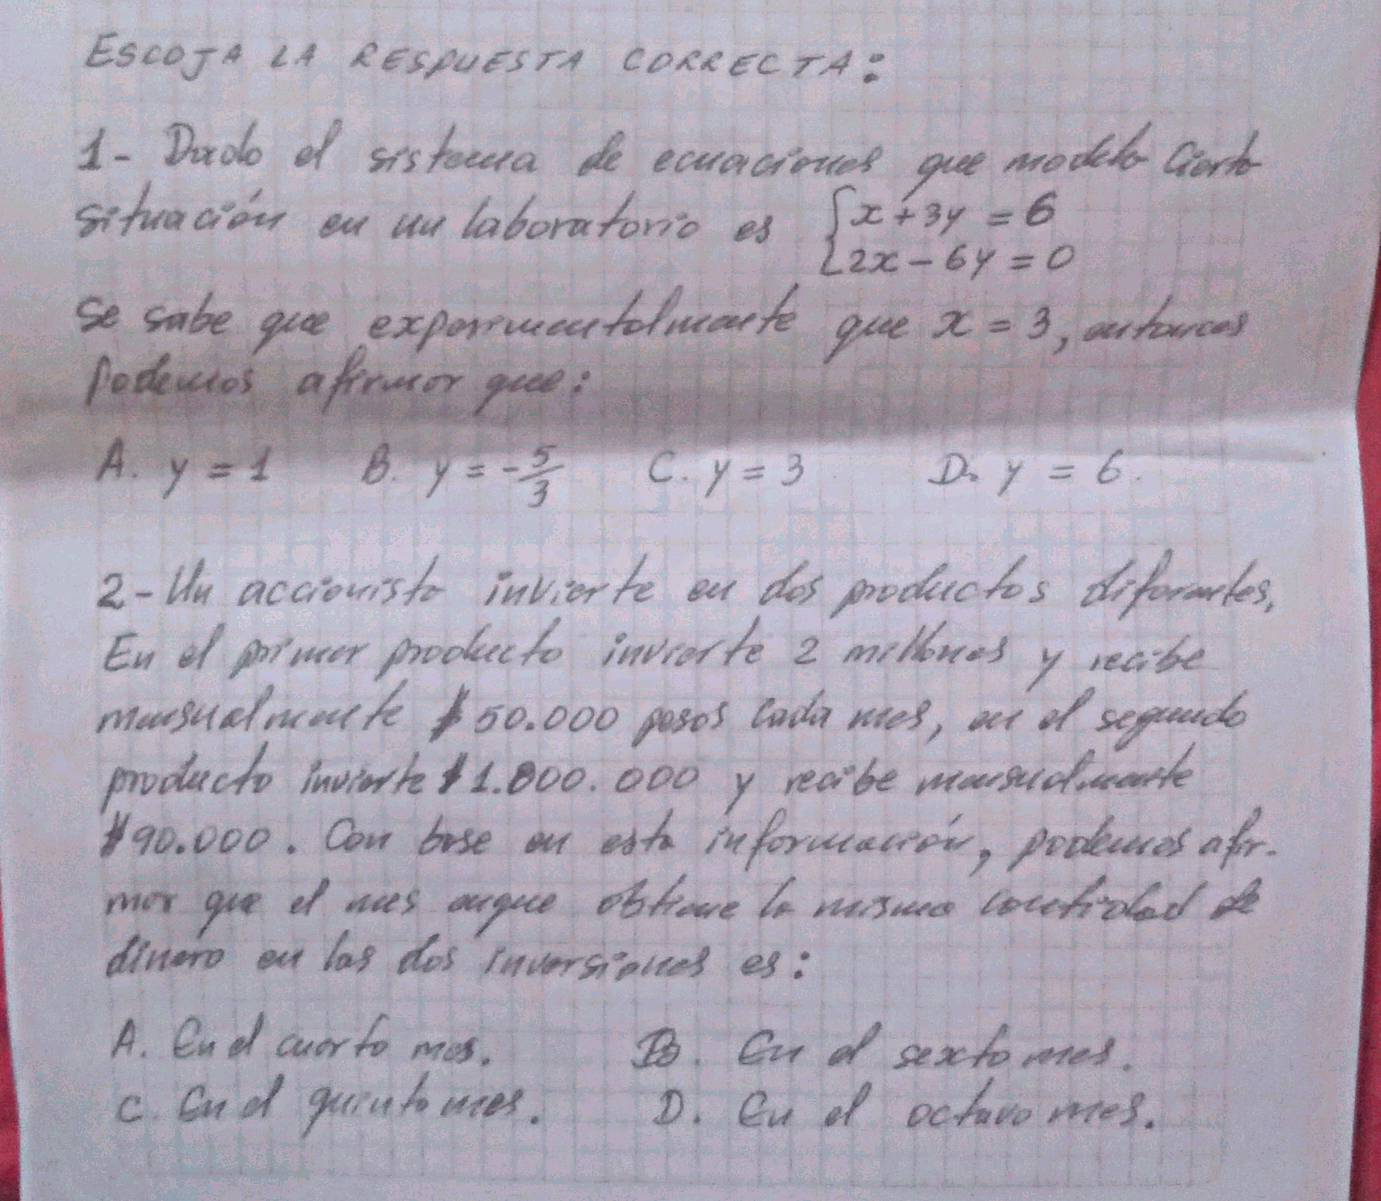 ESCOJA LA RESPUESTA CORRECTA:
1- Dado el sistema de ecuaciones que modelo cierto
situación en un laboratorio es { x + 3y = 6
2x - 6y = 0
Se sabe que experimentalmente que x = 3, entonces
podemos afirmar que:
A. y = 1 B. y = -5/3 C. y = 3 D. y = 6.
2- Un accionista invierte en dos productos diferentes.
En el primer producto invierte 2 millones y recibe
mensualmente $50.000 pesos cada mes, en el segundo
producto invierte $1.800.000 y recibe mensualmente
$90.000. Con base en esta información, podemos afir-
mar que el mes enque obtiene la misma cantidad de
dinero en las dos inversiones es:
A. En el cuarto mes. B. En el sexto mes.
C. En el quinto mes. D. En el octavo mes.